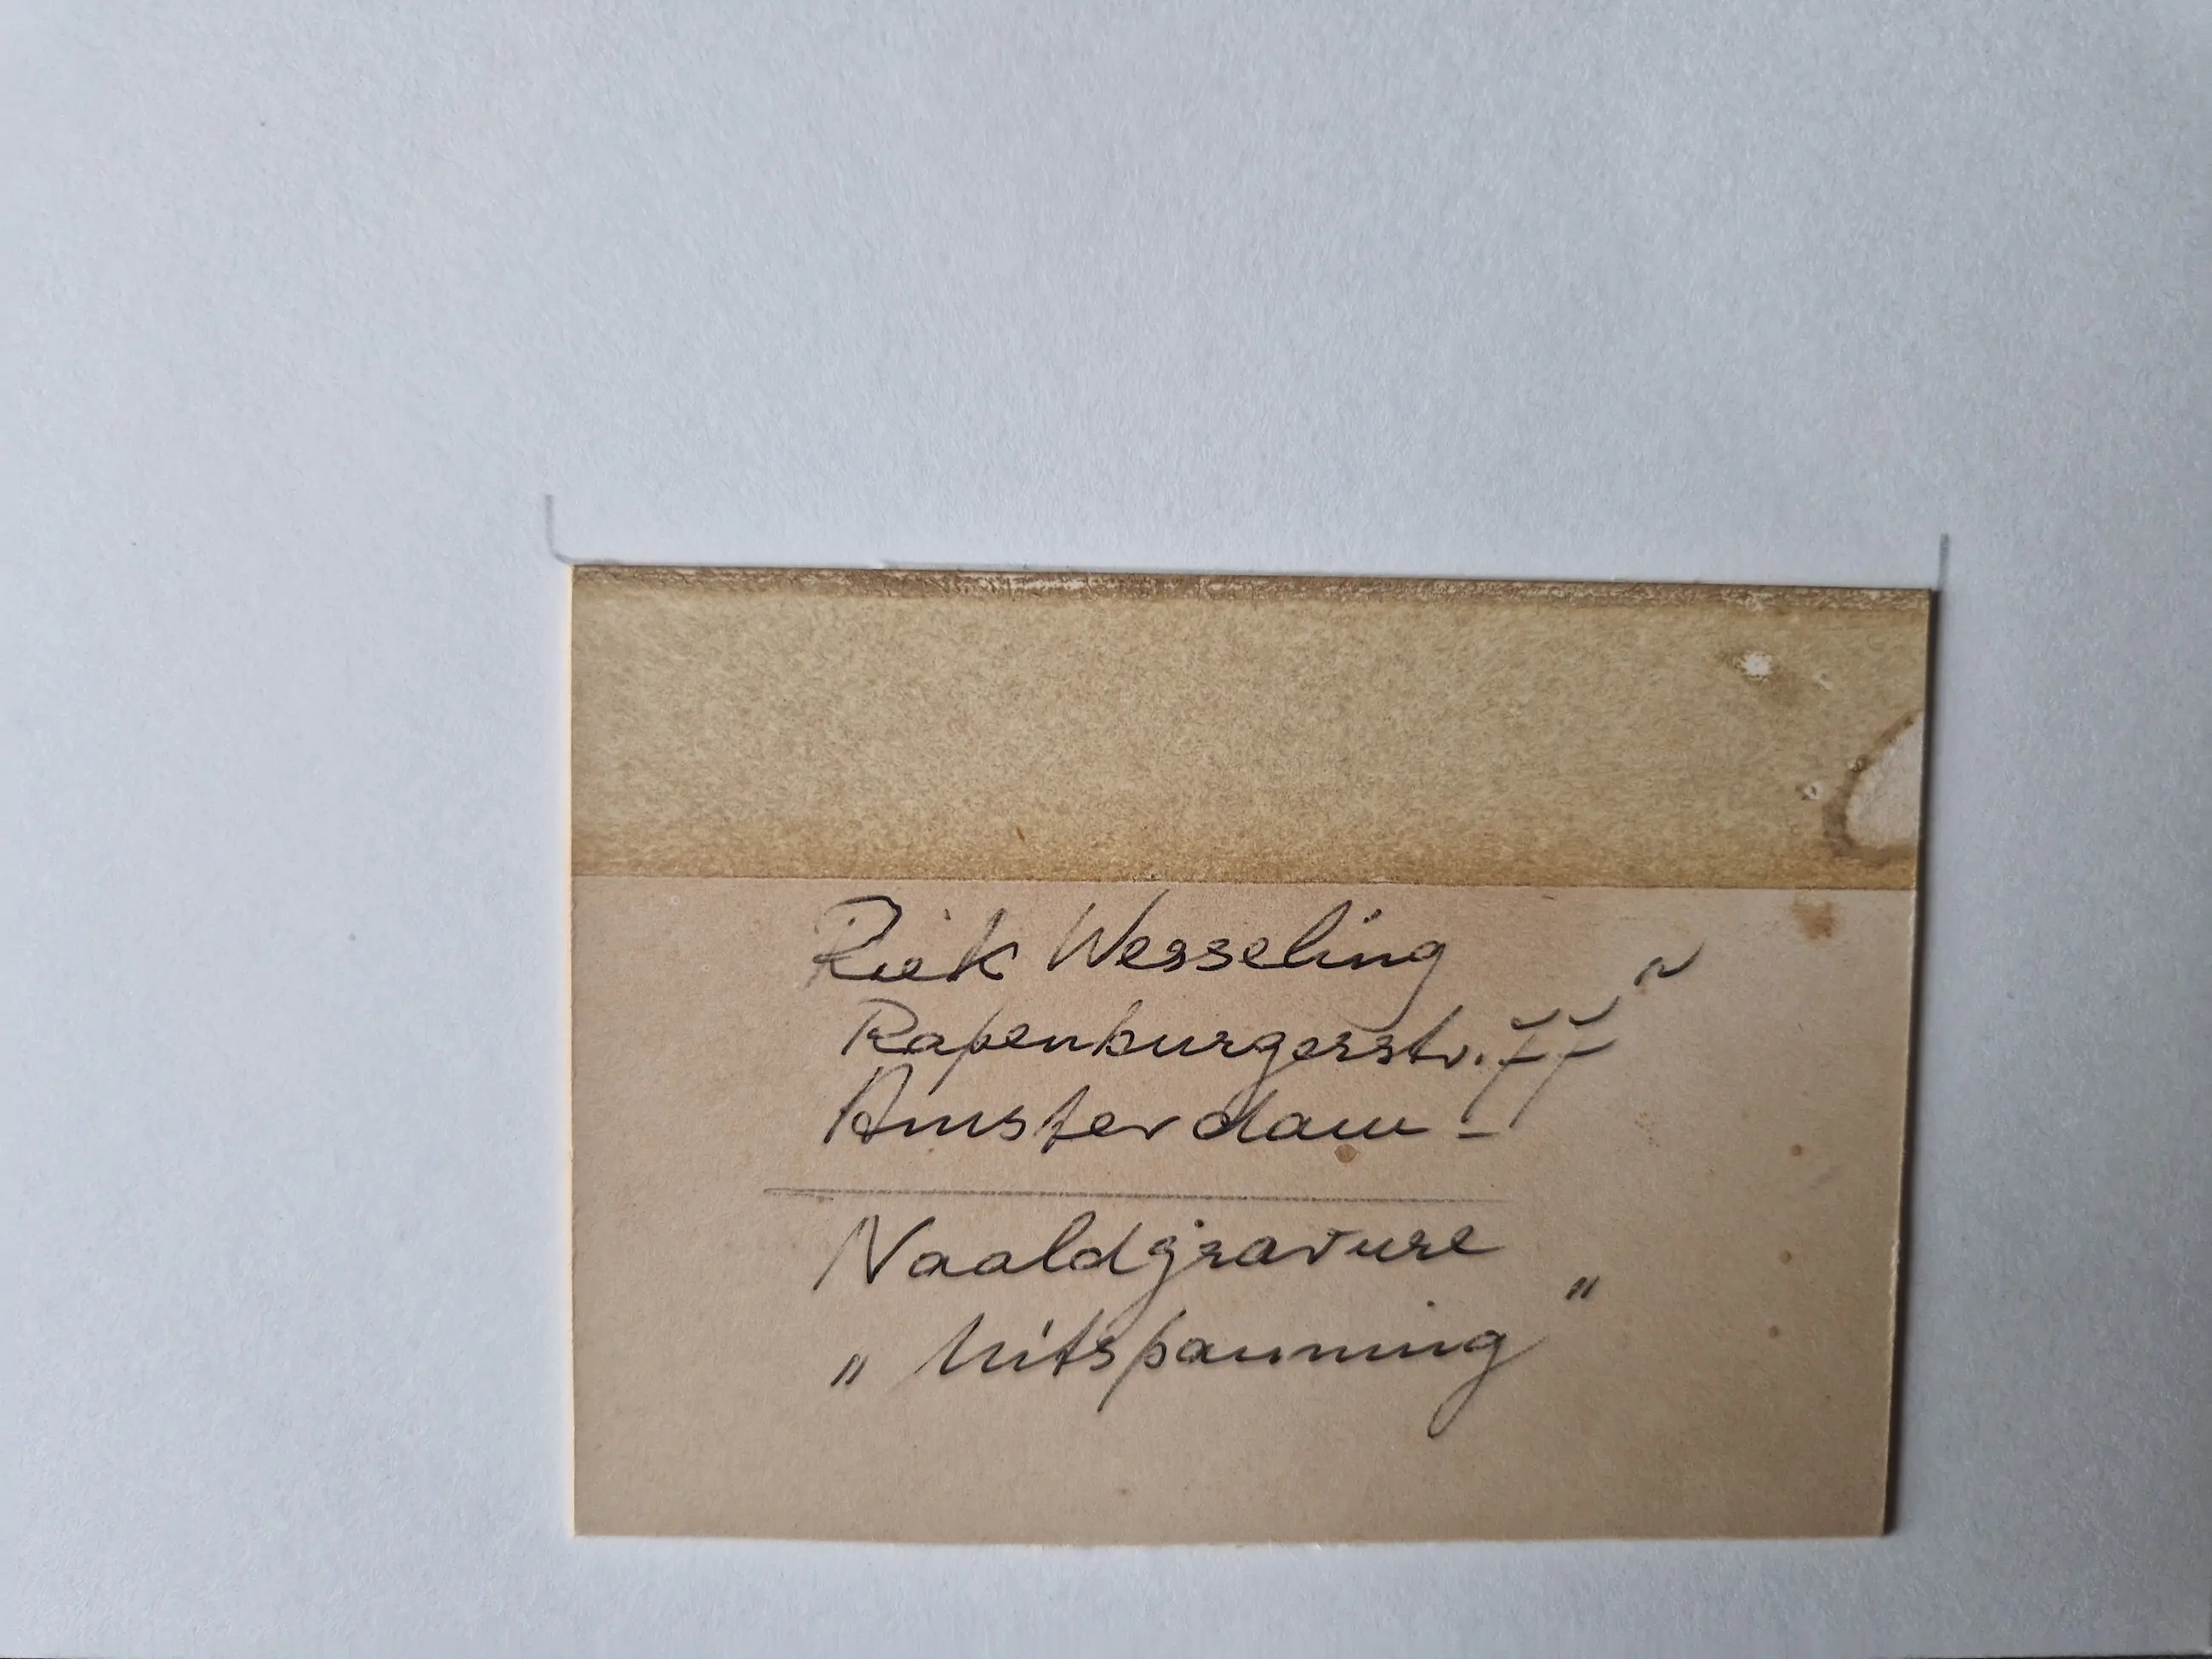 Riek Wesseling
Rapenburgerstr. 77"
Amsterdam -
Naaldgravure
„ Uitspanning "